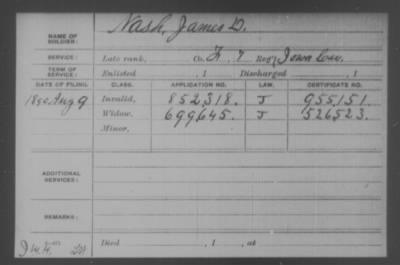 Nash, James D.
NAME OF SOLDIER:
SERVICE: Late rank, Co. F, 8 Reg't Iowa Cav.
TERM OF SERVICE: Enlisted , 1 Discharged , 1
DATE OF FILING. CLASS. APPLICATION NO. LAW. CERTIFICATE NO.
1890 Aug 9 Invalid, 852318. J 955151.
Widow, 699645. J 526523.
Minor,
ADDITIONAL SERVICES:
REMARKS:
Died , 1 , at